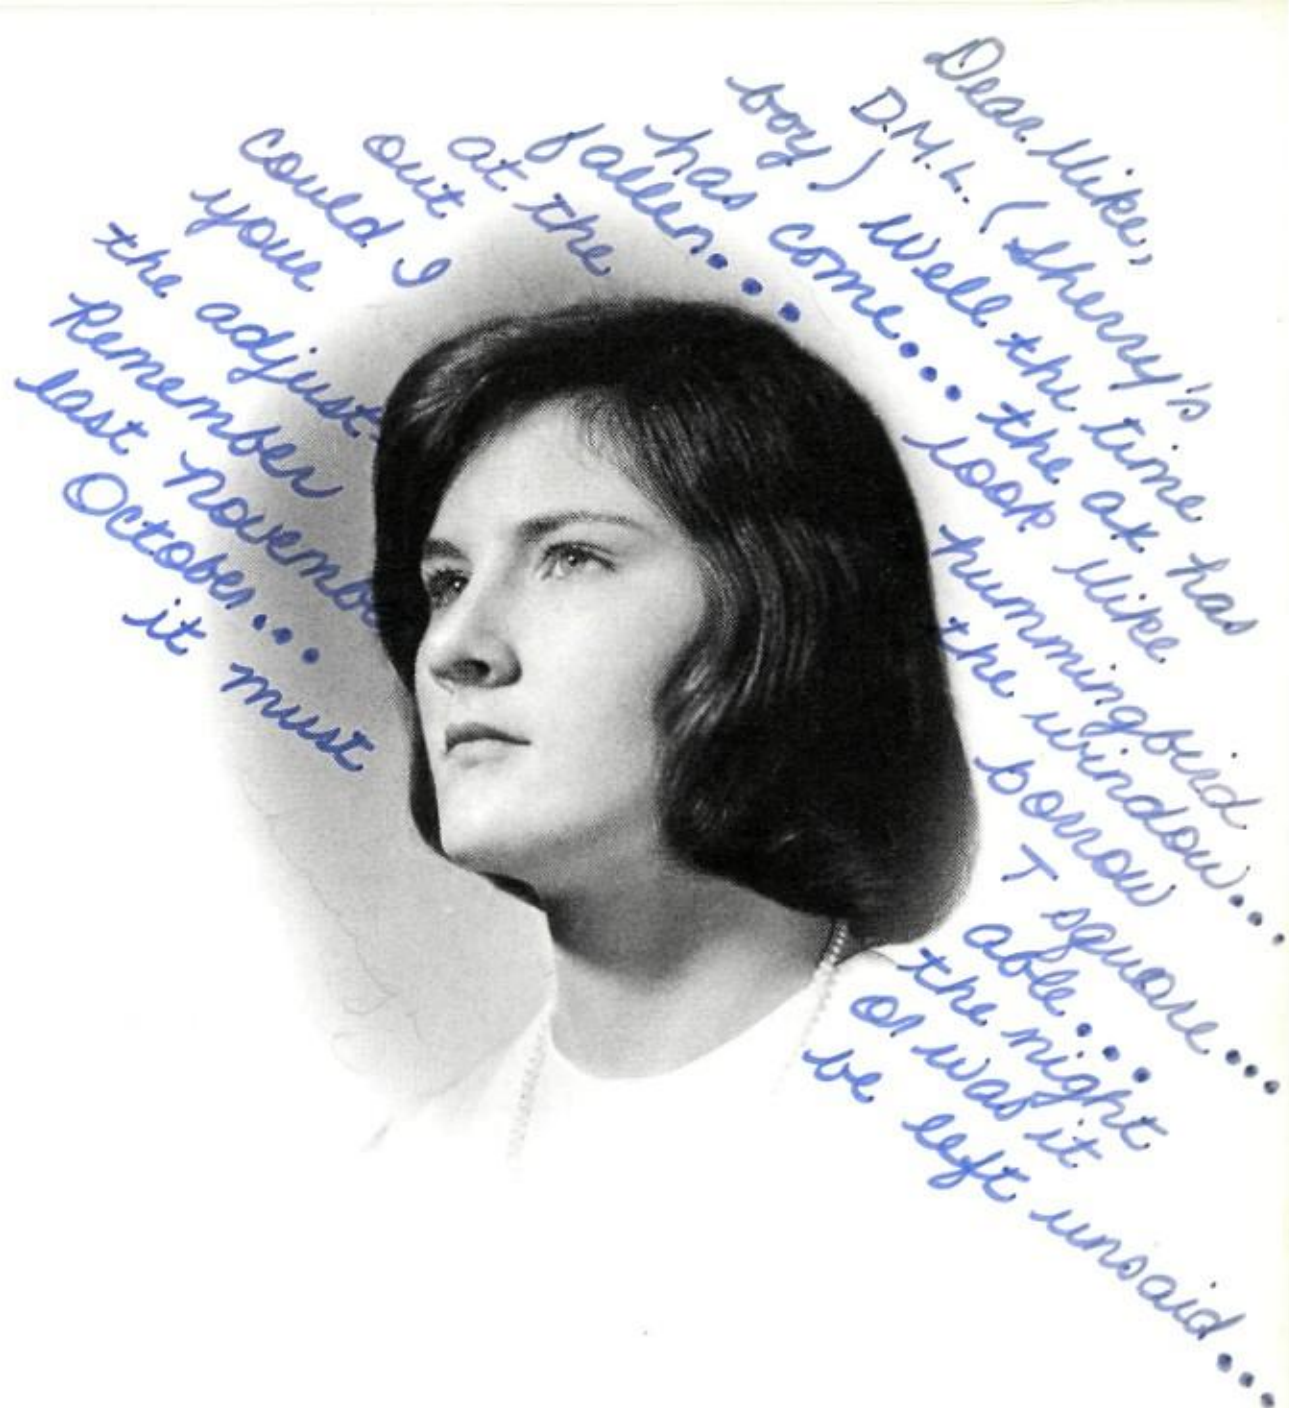 Dear Mike,
D.M.L. (Sherry's
boy) well the time
has come... the ax has
fallen... look Mike
at the hummingbird
out the window...
could I borrow
your T square...
the adjust-able...
Remember the night
last novembe or was it
October...
it must be left unsaid...